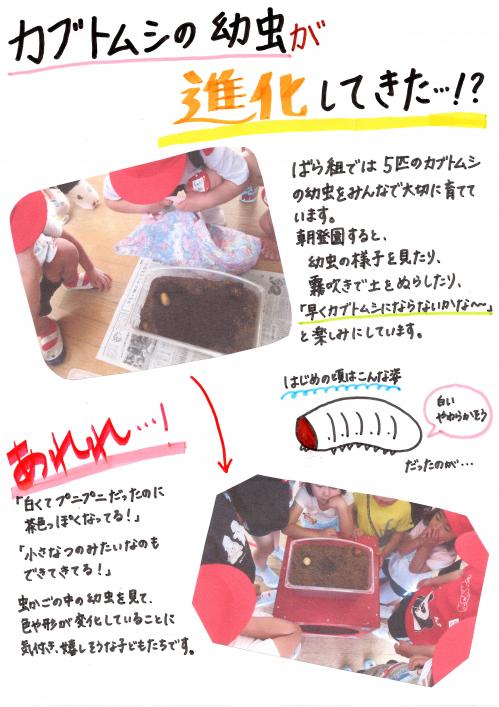 カブトムシの幼虫が
進化してきた…!?
ばら組では5匹のカブトムシ
の幼虫をみんなで大切に育てて
います。
朝登園すると、
幼虫の様子を見たり、
霧吹きで土をぬらしたり、
「早くカブトムシにならないかな〜」
と楽しみにしています。
はじめの頃はこんな姿
白い
やわらかそう
だったのが…
あれれ…!
「白くてプニプニだったのに
茶色っぽくなってる!」
「小さなつのみたいなのも
できてきてる!」
虫かごの中の幼虫を見て、
色や形が変化していることに
気付き、嬉しそうな子どもたちです。